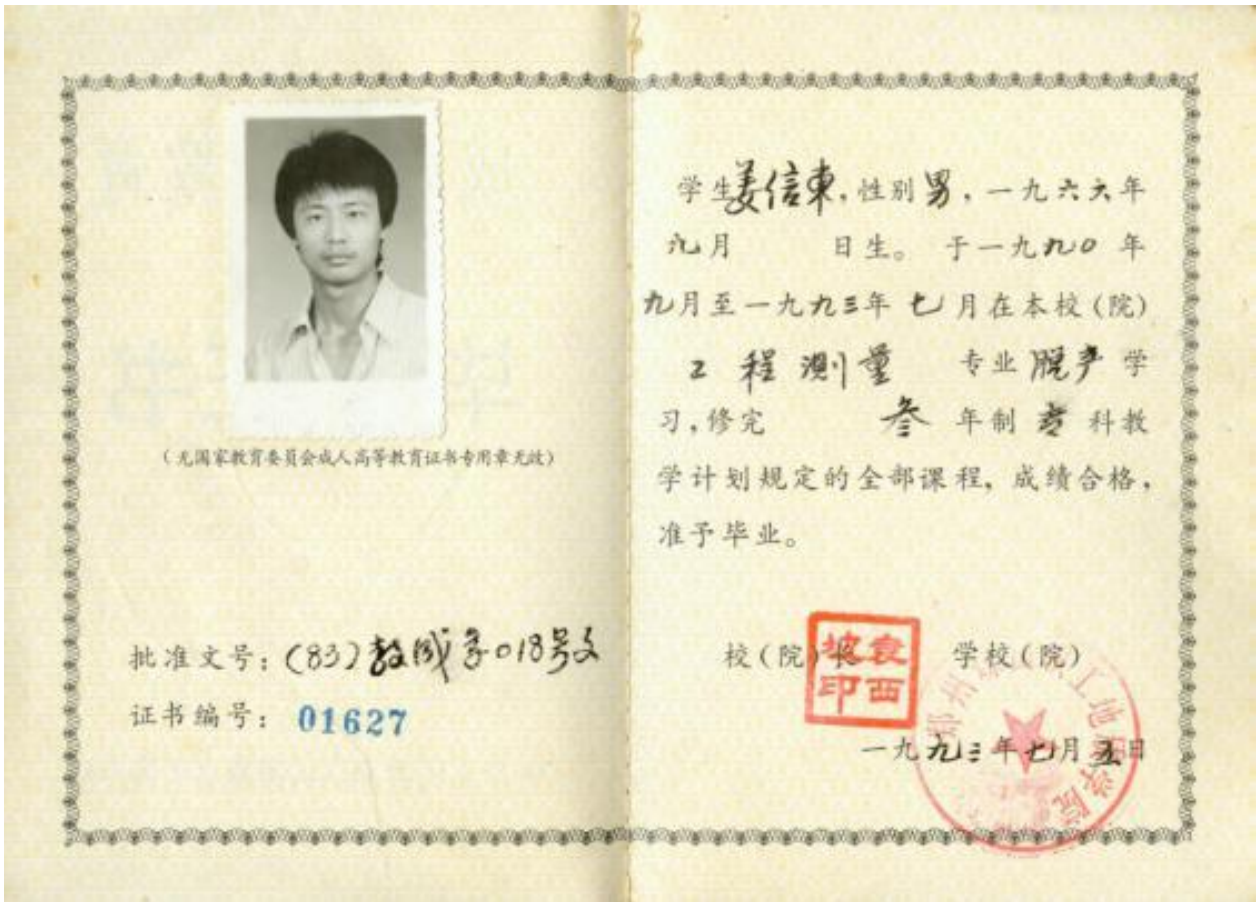 （无国家教育委员会成人高等教育证书专用章无效）
批准文号：(83)教成字018号文
证书编号：01627
学生姜信東，性别男，一九六六年
九月　　日生。于一九九〇年
九月至一九九三年七月在本校（院）
工程測量　专业脱产学
习，修完　叁年制专科教
学计划规定的全部课程，成绩合格，
准予毕业。
校（院）长　学校（院）
袁西坡印
一九九三年七月五日